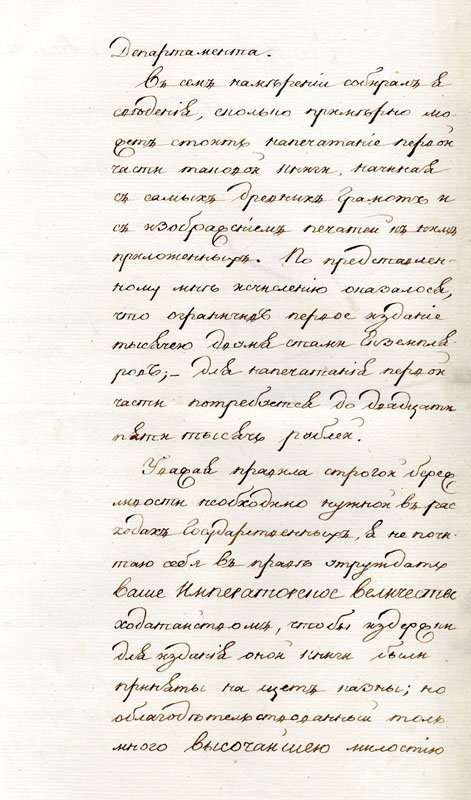 Департамента.
Въ семъ намѣреніи собиралъ я
свѣденія, сколько примѣрно мо-
жетъ стоить напечатаніе первой
части таковой книги, начиная
съ самыхъ древнихъ грамотъ и
съ изображеніемъ печатей къ нимъ
приложенныхъ. По представлен-
ному мнѣ исчисленію оказалося,
что ограничивъ первое изданіе
тысячею двумя стами Екземпля-
ровъ;- для напечатанія первой
части потребуется до двадцати
пяти тысячь рублей.
Уважая правила строгой береж
ливости необходимо нужной въ рас
ходахъ Государственныхъ, я не почи-
таю себя въ правѣ утруждать
Ваше Императорское величество
ходатайствомъ, чтобы издержки
для изданія оной книги были
приняты на щетъ казны; но
облагодѣтельствованный толи
много высочайшею милостію